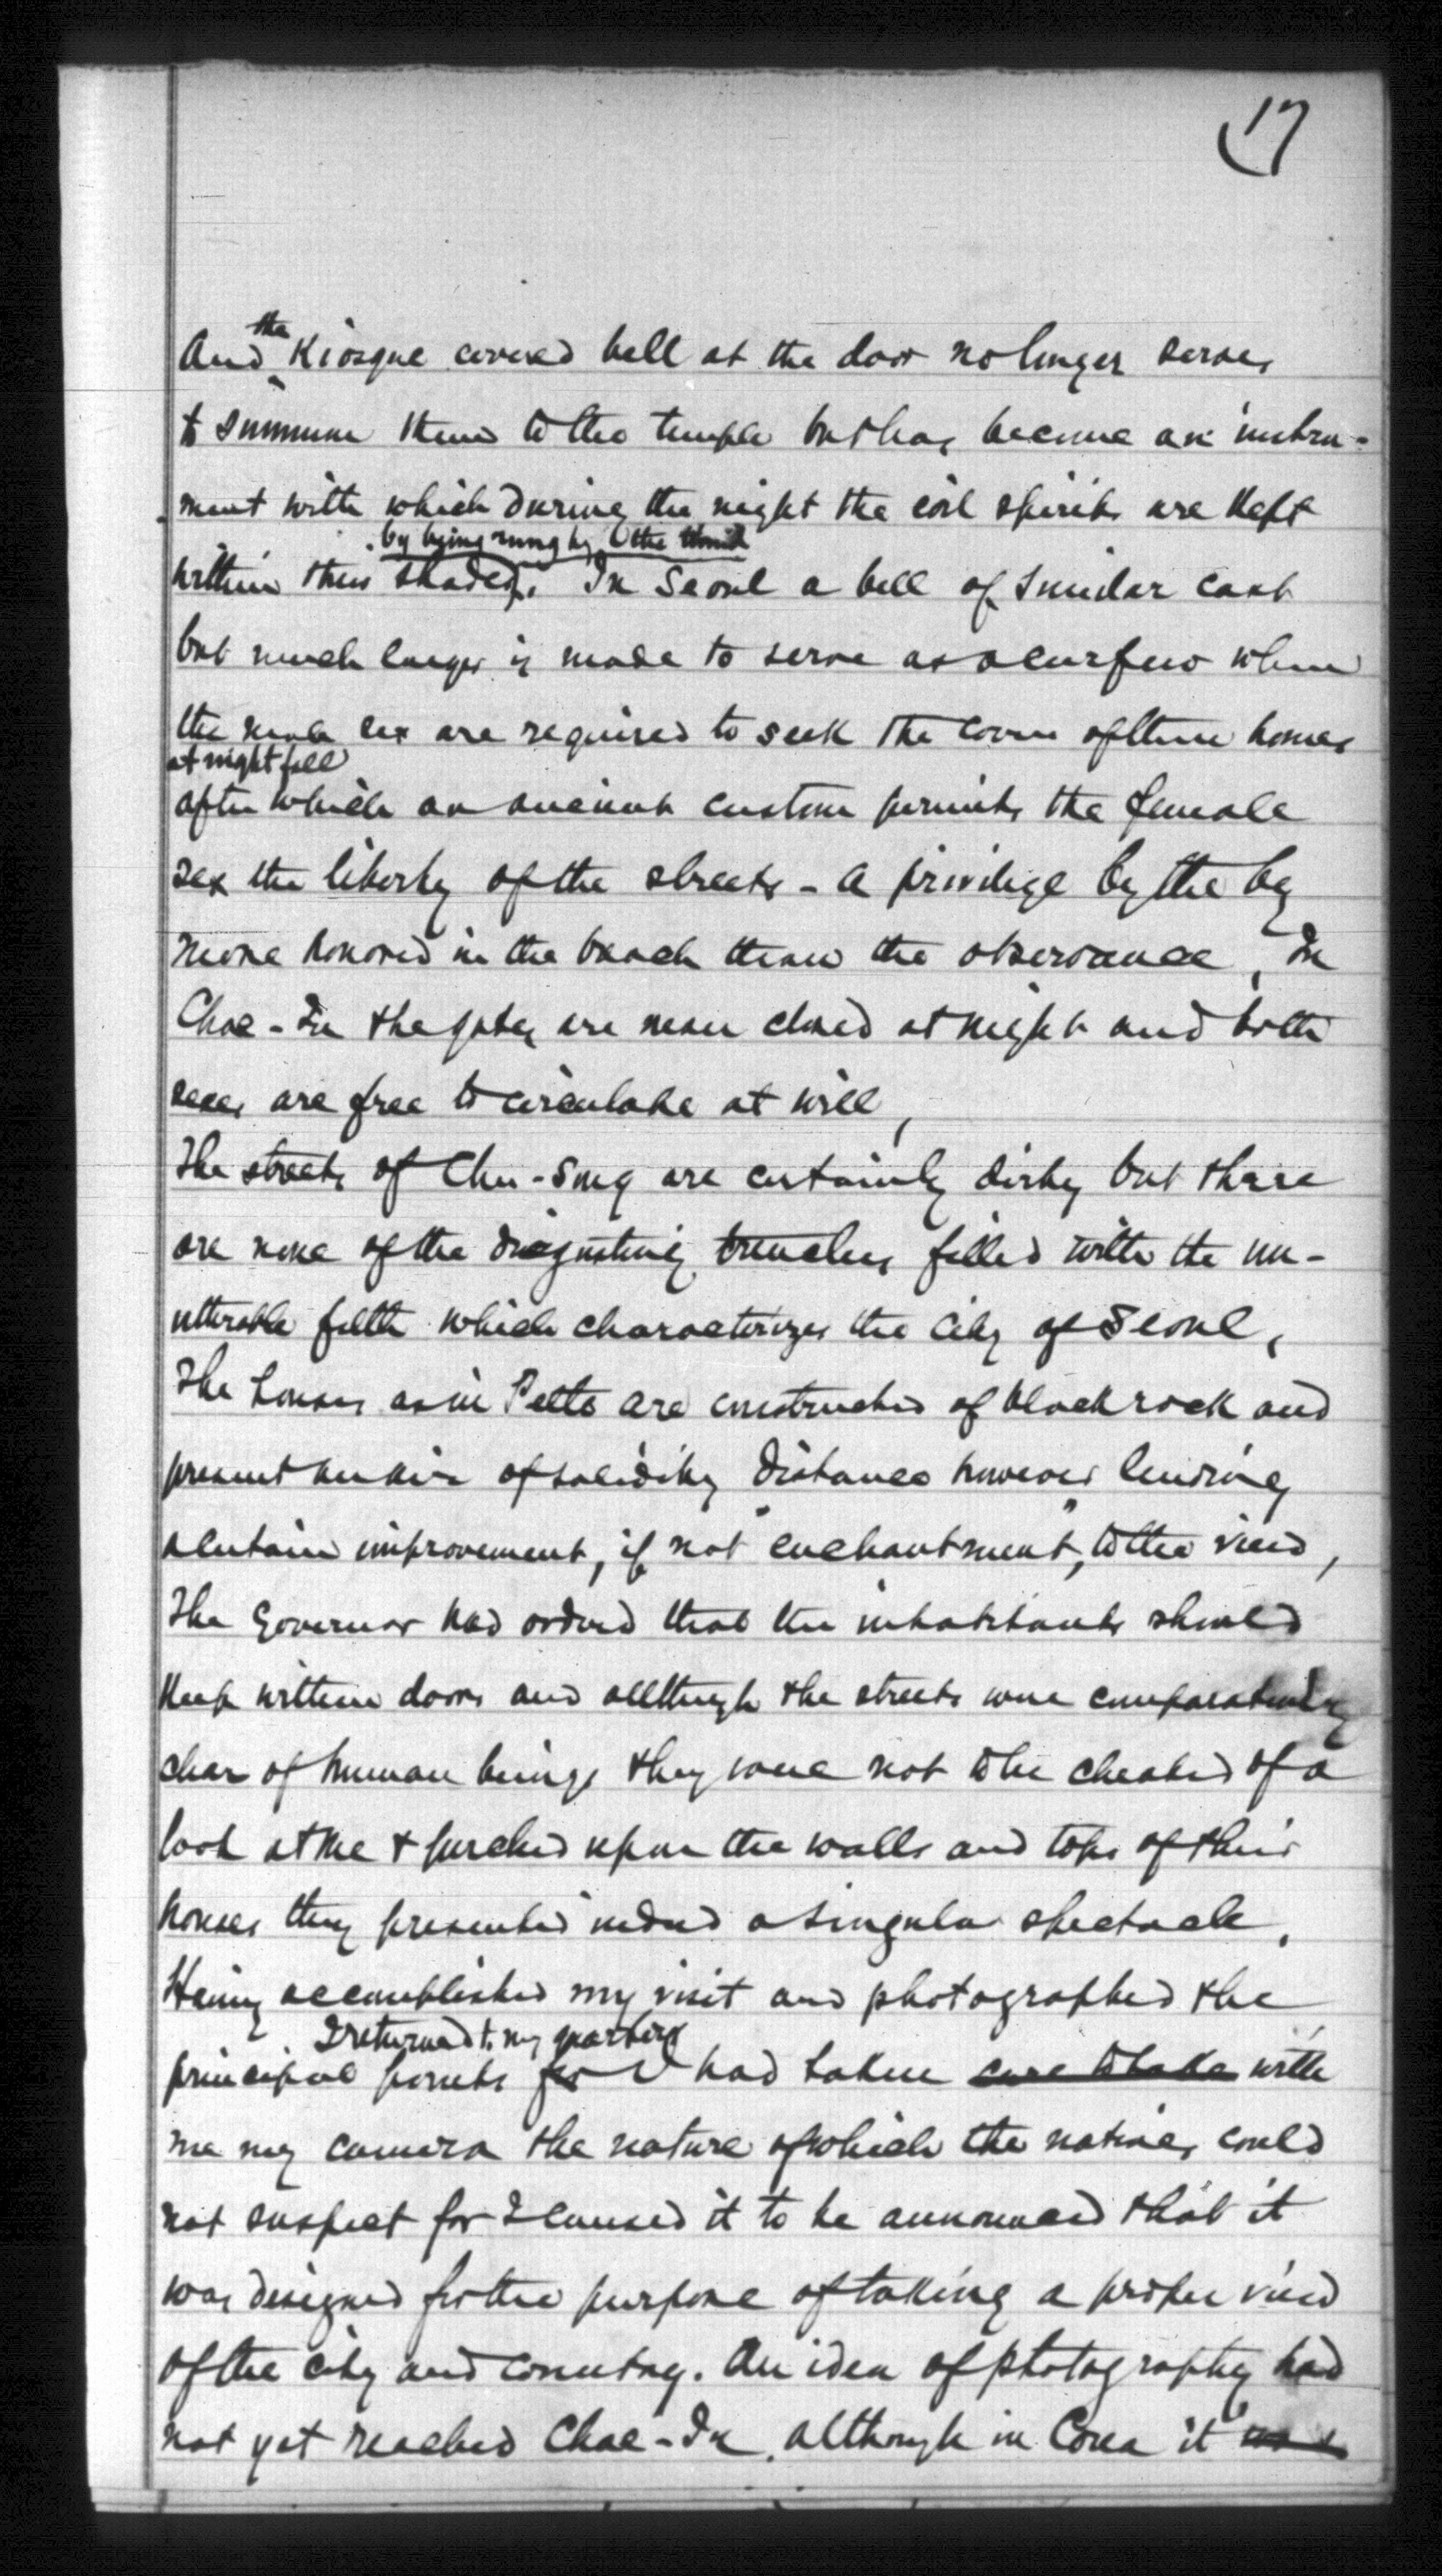 17
the
And Kiosque covered bell at the door no longer serves
to summon them to the temple but has become an instru-
ment with which during the night the evil spirits are kept
by being rung by the
within their shades. In Seoul a bell of similar cast
but much larger is made to serve as a curfew when
the male sex are required to seek the cover of their homes
at night fall
after which an ancient custom permits the female
sex the liberty of the streets - a privilege by the by
more honored in the breach than the observance, In
Choe-Ju the gates are never closed at night and both
sexes are free to circulate at will,
The streets of Chu-Sung are certainly dirty but there
are none of the disgusting trenches filled with the un-
utterable filth which characterizes the City of Seoul,
The houses as in Pelto are constructed of black rock and
present an air of solidity distance however lending
a certain improvement, if not "enchantment", to the view,
The Governor had ordered that the inhabitants should
keep within doors and allthough the streets were comparatively
clear of human beings they were not to be cheated of a
look at me & perched upon the walls and tops of their
houses they presented indeed a singular spectacle,
Having accomplished my visit and photographed the
I returned to my quarters
principal points for I had taken care to take with
me my camera the nature of which the natives could
not suspect for I caused it to be announced that it
was designed for the purpose of taking a proper view
of the city and country. An idea of photography had
not yet reached Choe-Ju, although in Corea it was